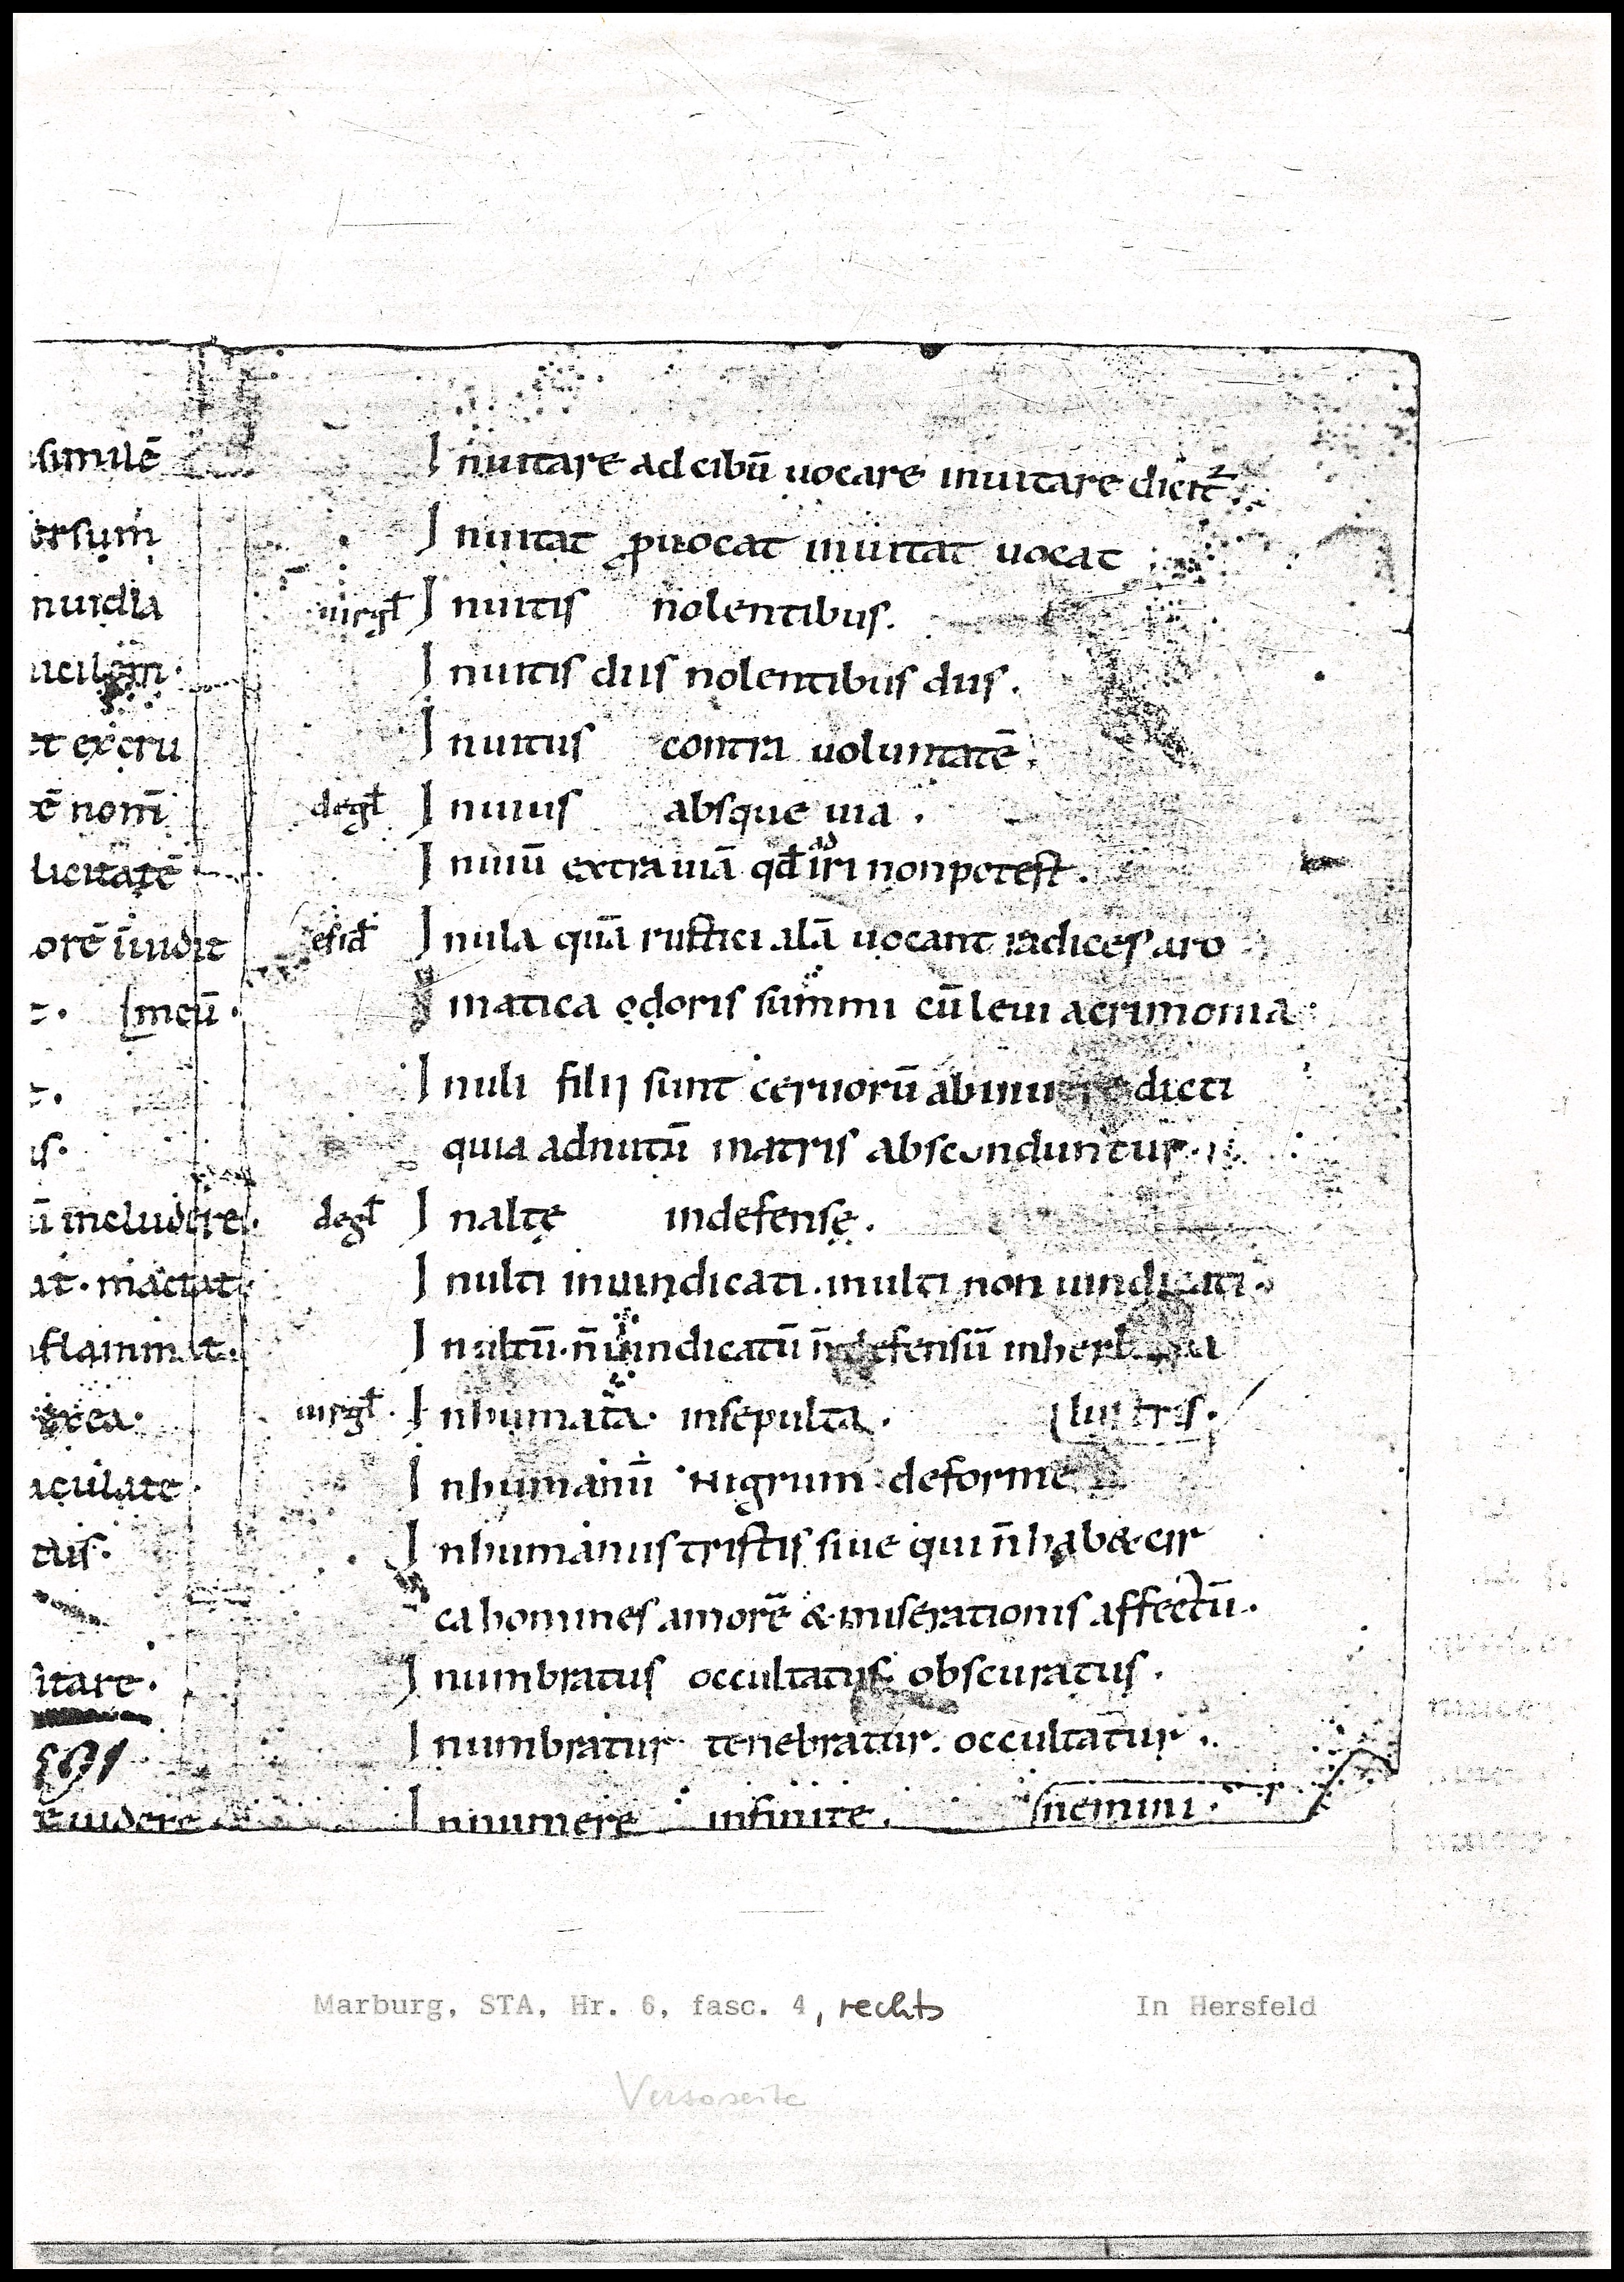 similē
ersum
nuidia
ucilem·
et excru
ē nom̄
licitatē
orē īuidit
[meū·
ū includere·
at· mactat·
flammat·
exea·
aculate·
tuis·
itare·
591
e uidere
Inuitare ad cibū uocare inuitare dicit᷑
Inuitat ꝓuocat inuitat uocat
uirgl̄ Inuitis nolentibus.
Inuitis diis nolentibus diis.
Inuitus contra uoluntatē.
degl̄ Inuius absque uia.
Inuiū extra uiā qd̄ iri non potest.
esid̄ Inula quā rustici alā uocant radices aro
matica odoris summi cū leui acrimonia
Inuli filij sunt ceruorū ab dicti
quia ad nutū matris absconduntur·
degl̄ Inultę indefensę.
Inulti inuindicati. inulti non uindicati·
Inultū· n̄ uindicatū n̄ defensū
uirgl̄· Inhumata· insepulta.
[lustris·
Inhumanū Nigrum deforme
Inhumanus tristis siue qui n̄ hab& cir
ca homines amorē & miserationis affectū·
Inumbratus occultatus obscuratus.
Inumbratur tenebratur. occultatur.
Innumere infinite. [nemini·
Marburg, STA, Hr. 6, fasc. 4, rechts In Hersfeld
Versoseite